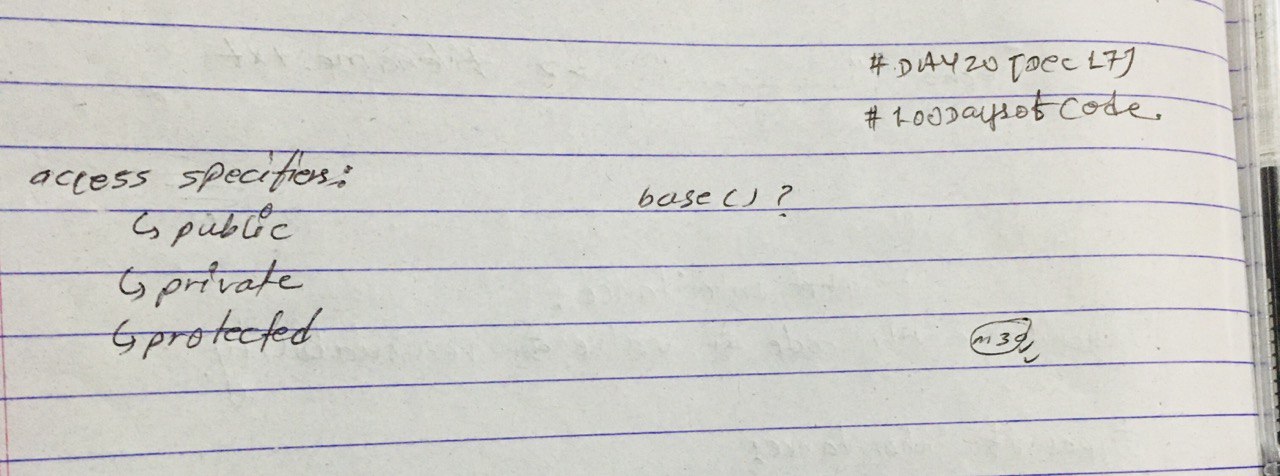 #DAY20 [Dec 17]
#100DaysofCode.
access specifiers:
base() ?
↳ public
↳ private
↳ protected